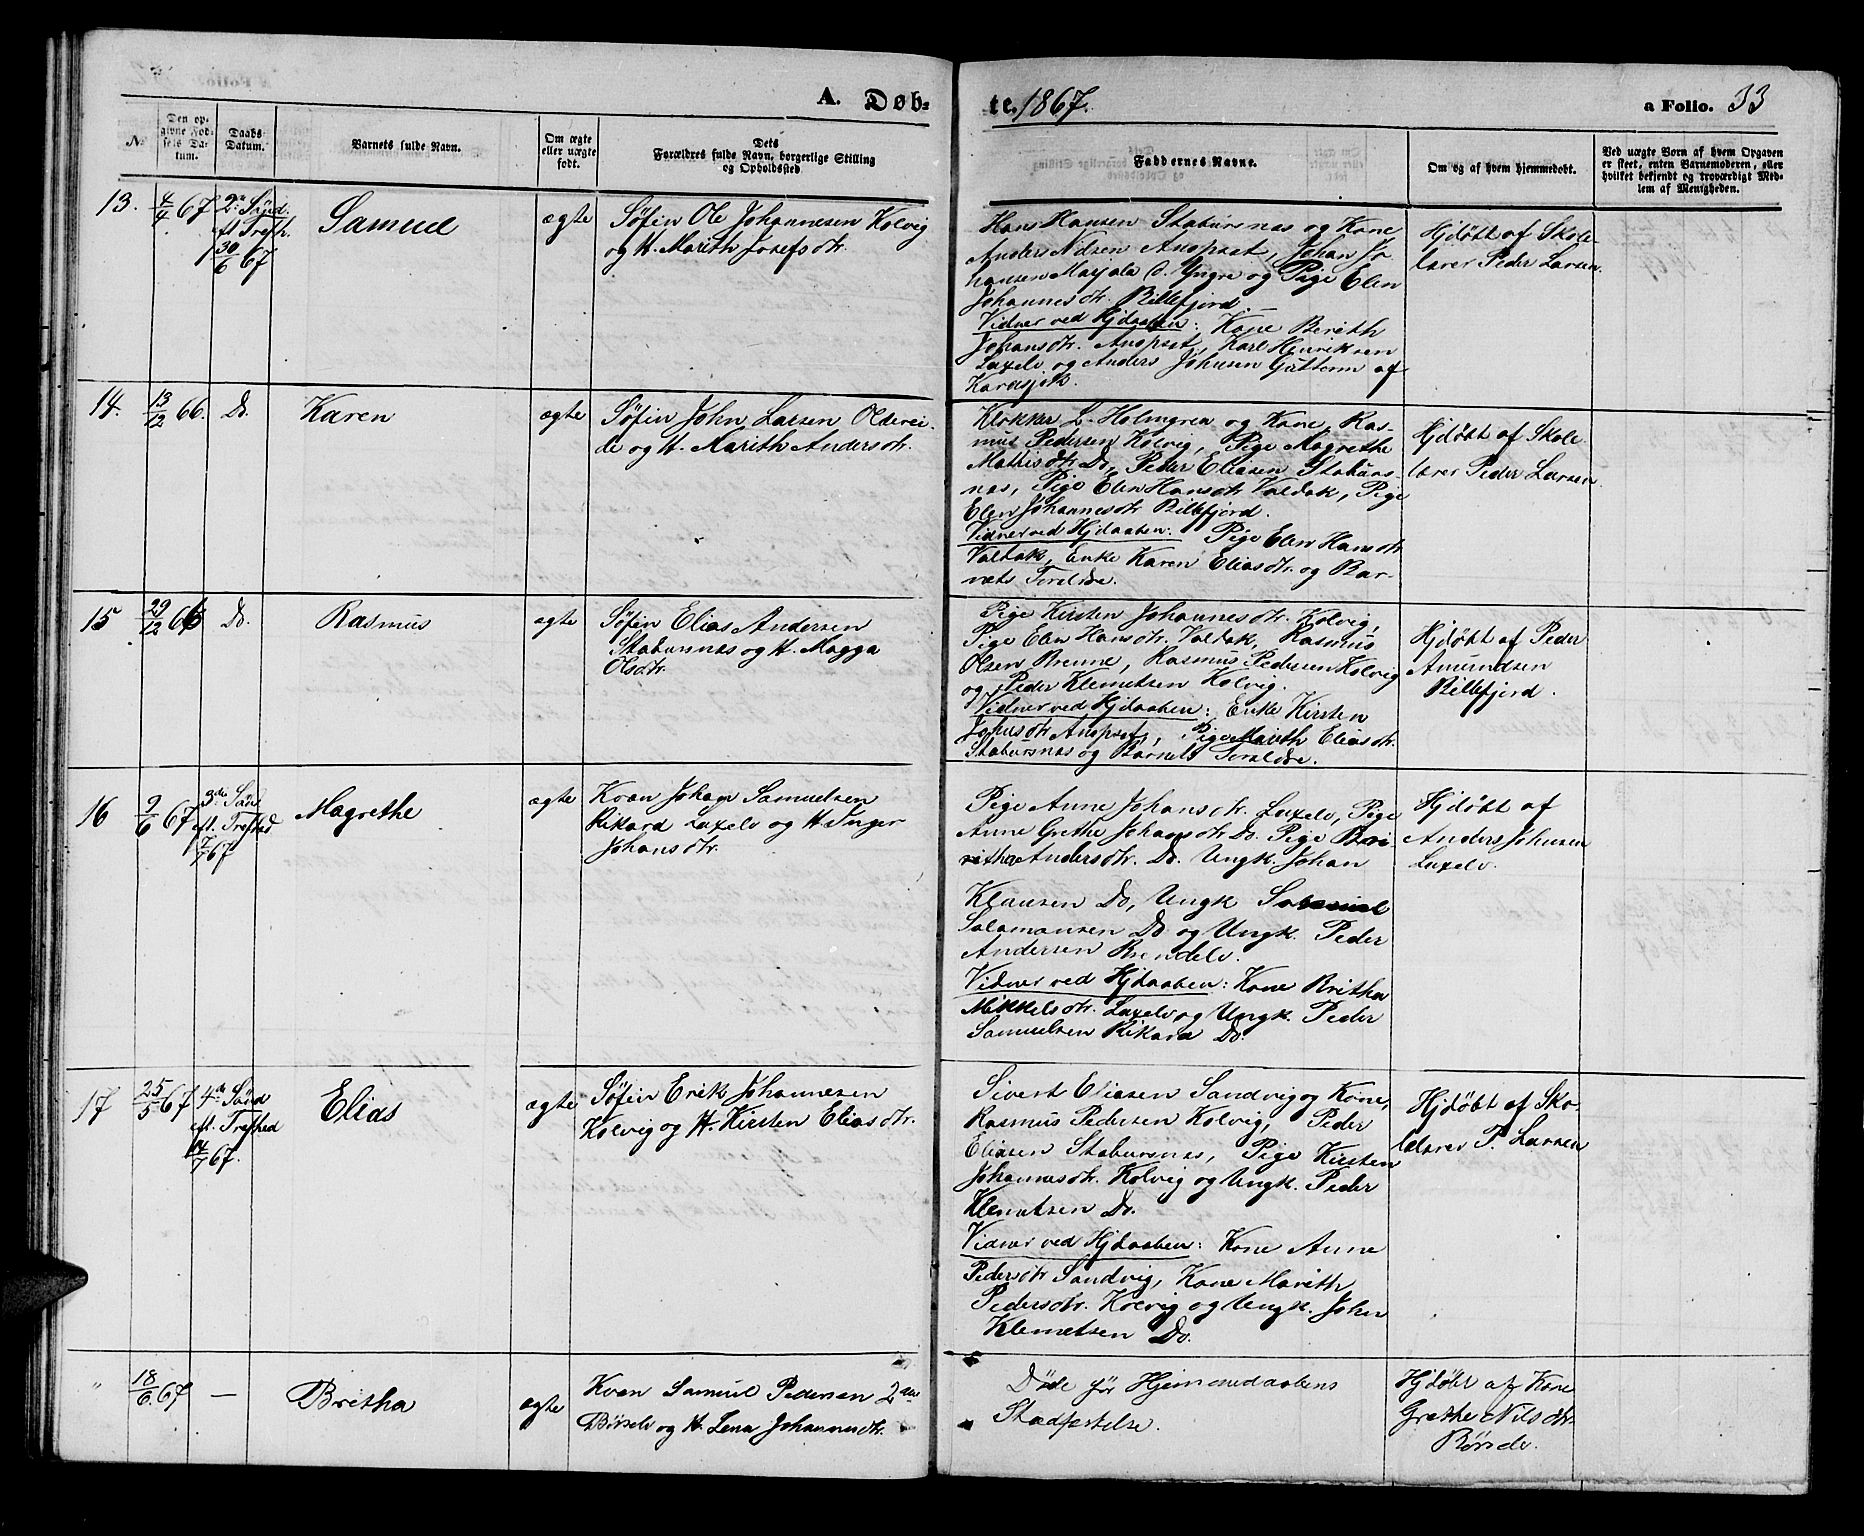 A. Døb-
te. 1867.
a Folio. 33
No
Den op-
givne Fød-
sels Da-
tum.
Daabs-
Datum.
Barnets fulde Navn.
Om ægte
eller uægte
født.
Dets
Forældres fulde Navn, borgerlige Stilling
og Opholdssted.
Faddernes Navne.
Om og af hvem hjemmedøbt.
Ved uægte Børn af hvem Opgaven
er skeet, enten Barnemoderen, eller
hvilket bekjendt og troværdigt Med-
lem af Menigheden.
13.
4/4 67
2n Sönd.
ft Trefh.
30/6 67
Samuel
ægte
Søfin Ole Johannesen Kolvig
og H. Marith Josefsdtr.
Hans Hansen Stabursnas og Kone
Anders Nilsen Anopset, Johan Jo
hansen d. Yngre og Pige Elen
Johannesdtr. Billefjord
Vidner ved Hjdaaben: Kone Berith
Johansdtr. Anopset, Karl Henriksen
Laxelv og Anders Johnsen Guttorm af
Karasjok.
Hjdøbt af Skole-
lærer Peder Larsen.
14.
13/12 66.
Do.
Karen
ægte
Søfin John Larsen Olderei-
de og H. Marith Andersdtr.
Klokker L. Holmgren og Kone, Ras-
mus Pedersen Kolvig, Pige Magrethe
Mathisdtr Do, Peder Eliasen Staburs-
nas, Pige Elen Hansdtr Valdak, Pige
Elen Johannesdtr Billefjord.
Vidner ved Hjdaaben: Pige Elen Hansdtr
Valdak, Enke Karen Eliasdtr. og Bar-
nets Foraldre.
Hjdøbt af Skole
lærer Peder Larsen.
15
29/12 66
Do.
Rasmus
ægte
Søfin Elias Andersen
Stabursnas og H. Magga
Olsdtr.
Pige Kirsten Johannesdtr. Kolvig,
Pige Elen Hansdtr. Valdak, Rasmus
Olsen Brenne, Rasmus Pedersen Kolvig
og Peder Klemetsen Kolvig.
Vidner ved Hjdaaben: Enke Kirsten
Johnsdtr Anopset, Pige Marith Eliasdtr.
Stabursnas og Barnets Foraldre.
Hjdøbt af Peder
Amundsen
Billefjord.
16
9/6 67
3die Sön
eft. Trefhed
7/7 67
Magrethe
ægte
Kvan Johan Samuelsen
Rikard Laxelv og H Inger
Johansdtr.
Pige Anne Johansdtr. Laxelv, Pige
Anne Grethe Johansdtr Do. Pige Beri
Andersdtr. Do. Ungk. Johan
Klausen Do, Ungk
Salamonsen Do og Ungk. Peder
Andersen Brendelv.
Vidner ved Hjdaaben: Kone Britha
Mikkelsdtr. Laxelv og Ungk. Peder
Samuelsen Rikard Do.
Hjdøbt af
Anders Johnsen
Laxelv.
17
25/5 67
4de Sönd
eft. Trefhed
14/7 67.
Elias
ægte
Søfin Erik Johannesen
Kolvig og H. Kirsten Eliasdtr.
Sivert Eliasen Sandvig og Kone,
Rasmus Pedersen Kolvig, Peder
Eliasen Stabursnas, Pige Kirsten
Johannesdtr. Kolvig og Ungk. Peder
Klemetsen Do.
Vidner ved Hjdaaben: Kone Anne
Pedersdtr Sandvig, Kone Marith
Pedersdtr. Kolvig og Ungk. John
Klemetsen Do.
Hjdøbt af Sko-
lelærer P. Larsen
"
18/6 67
—
Britha
ægte
Kvan Samuel Pedersen 2den
Börselv og H. Lena Johannesdtr.
Døde før Hjemmedaabens
Stadfæstelse.
Hjdøbt af Kone
Grethe Nilsdtr.
Börselv.